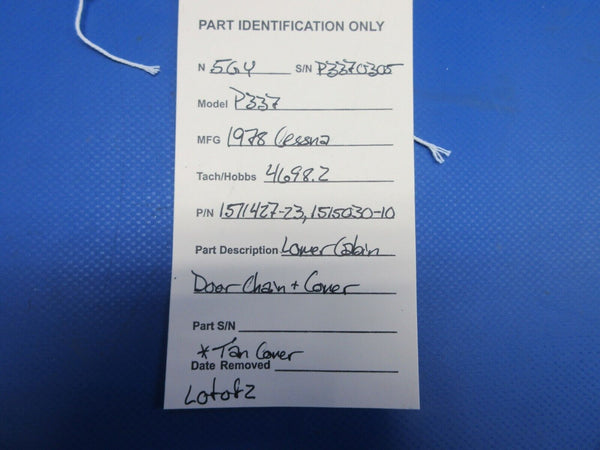 PART IDENTIFICATION ONLY
N 5GY S/N P3370305
Model P337
MFG 1978 Cessna
Tach/Hobbs 4698.2
P/N 1511427-23, 1515030-10
Part Description Lower Cabin
Door Chain + Cover
Part S/N
* Tan Cover
Date Removed
Lot of 2